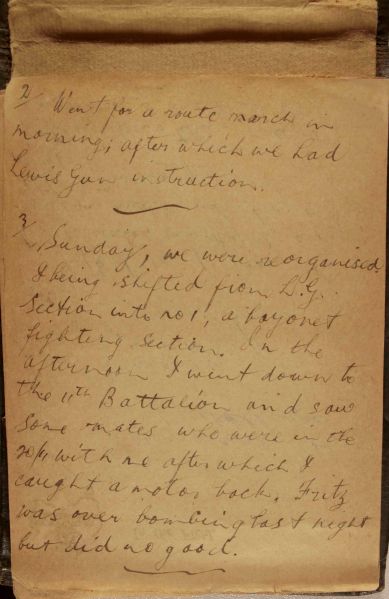 2/ Went for a route march in
morning; after which we had
Lewis Gun instruction.
3/ Sunday, we were reorganised.
I being shifted from L.G.
Section into no 1, a bayonet
fighting section. In the
afternoon I went down to
the 11th Battalion and saw
some mates who were in the
20/11 with me after which I
caught a motor back. Fritz
was over bombing last night
but did no good.